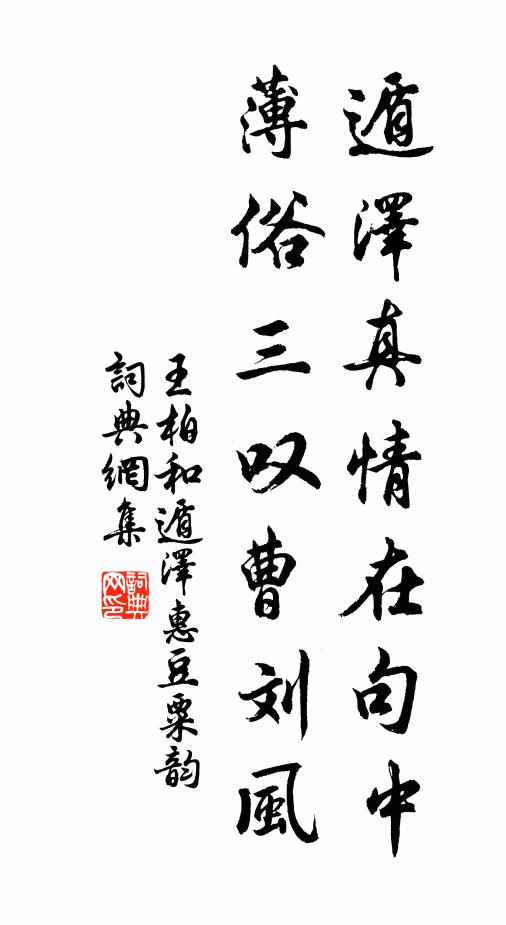 遁澤真情在句中
薄俗三叹曹刘風
王柏和遁澤惠豆粟韵
詞典網集
詞典网印